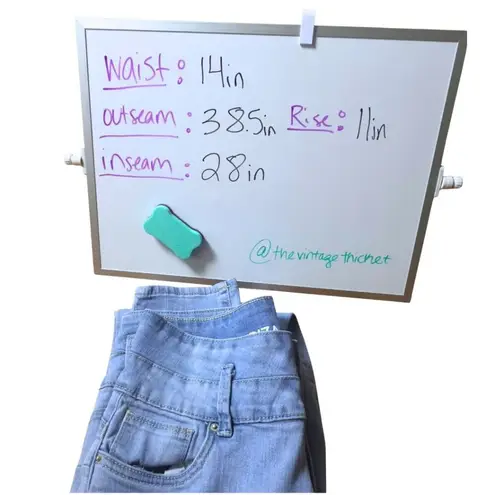 Waist: 14in
outseam: 38.5in Rise: 11in
inseam: 28in
@thevintagethicket